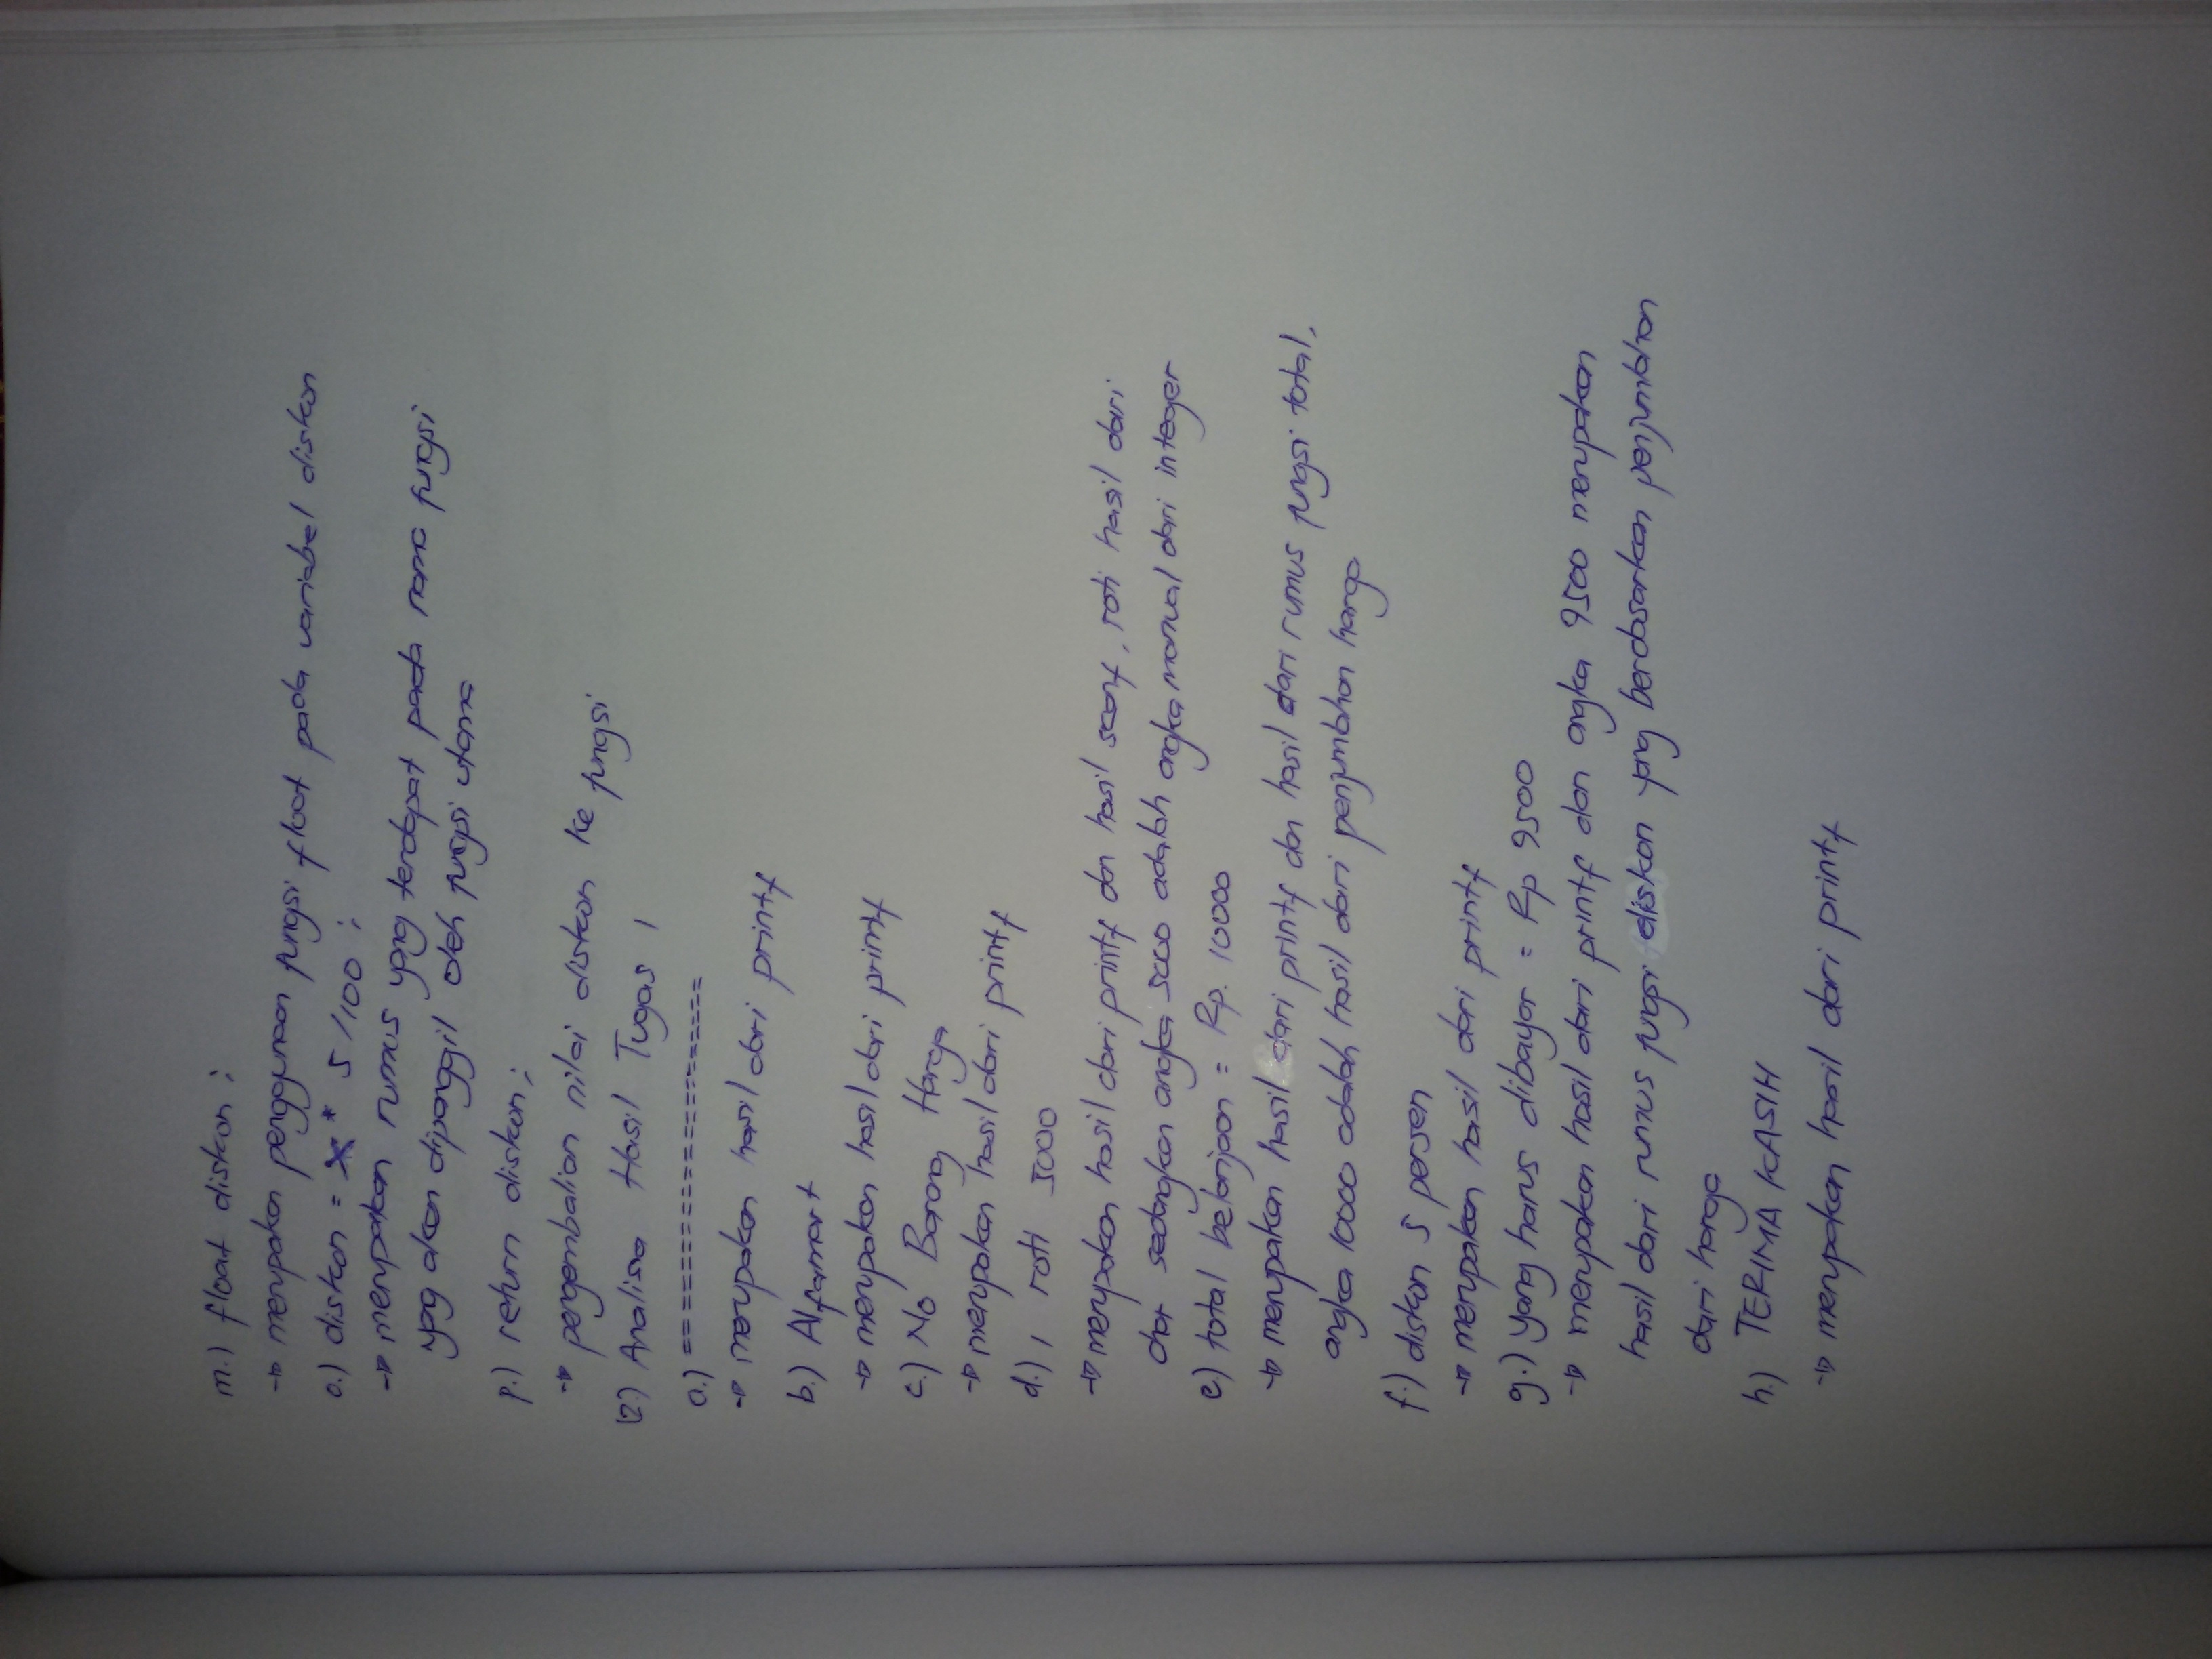 m.) float diskon ;
→ merupakan penggunaan fungsi float pada variabel diskon
o.) diskon = x * 5 /100 ;
→ merupakan rumus yang terdapat pada nama fungsi
yang akan dipanggil oleh fungsi utama
p.) return diskon ;
→ pengembalian nilai diskon ke fungsi
(2.) Analisa Hasil Tugas 1
a.) ====================
→ merupakan hasil dari printf
b.) Alfamart
→ merupakan hasil dari printf
c.) No Barang Harga
→ merupakan hasil dari printf
d.) 1 roti 5000
→ merupakan hasil dari printf dan hasil scanf, roti hasil dari
char sedangkan angka 5000 adalah angka manual dari integer
e) total belanjaan = Rp. 10000
→ merupakan hasil dari printf dan hasil dari rumus fungsi total,
angka 10000 adalah hasil dari penjumblahan harga
f.) diskon 5 persen
→ merupakan hasil dari printf
g.) yang harus dibayar = Rp 9500
→ merupakan hasil dari printf dan angka 9500 merupakan
hasil dari rumus fungsi diskon yang berdasarkan penjumblahan
dari harga
h.) TERIMA KASIH
→ merupakan hasil dari printf